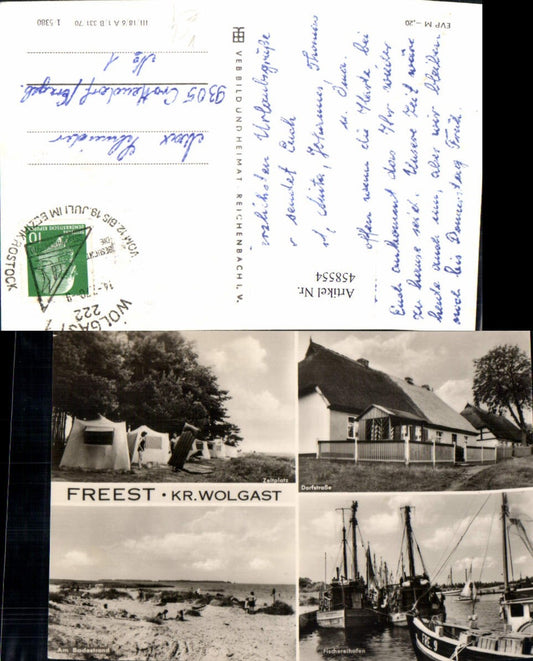 EVP M –,20
III 18/6 A 1 B 331 70
1 5380
VEB BILD UND HEIMAT REICHENBACH I. V.
Artikel Nr.
458554
Urlaubsgrüße
sendet Euch
Anita, Johannes Thomas
u. Ina.
Hoffen wenn die Karte bei
Euch ankommt dass Ihr wieder
zu hause seid. Unsere Zeit wäre
heute auch um, aber wir bleiben
noch bis Donnerstag Früh.
Max Schneider
9305
No 1
VOM 12. BIS 19. JULI IM BEZIRK ROSTOCK
WOLGAST 1
222
10
Zeltplatz
Dorfstraße
FREEST · KR. WOLGAST
Am Badestrand
Fischereihafen
FRE 9